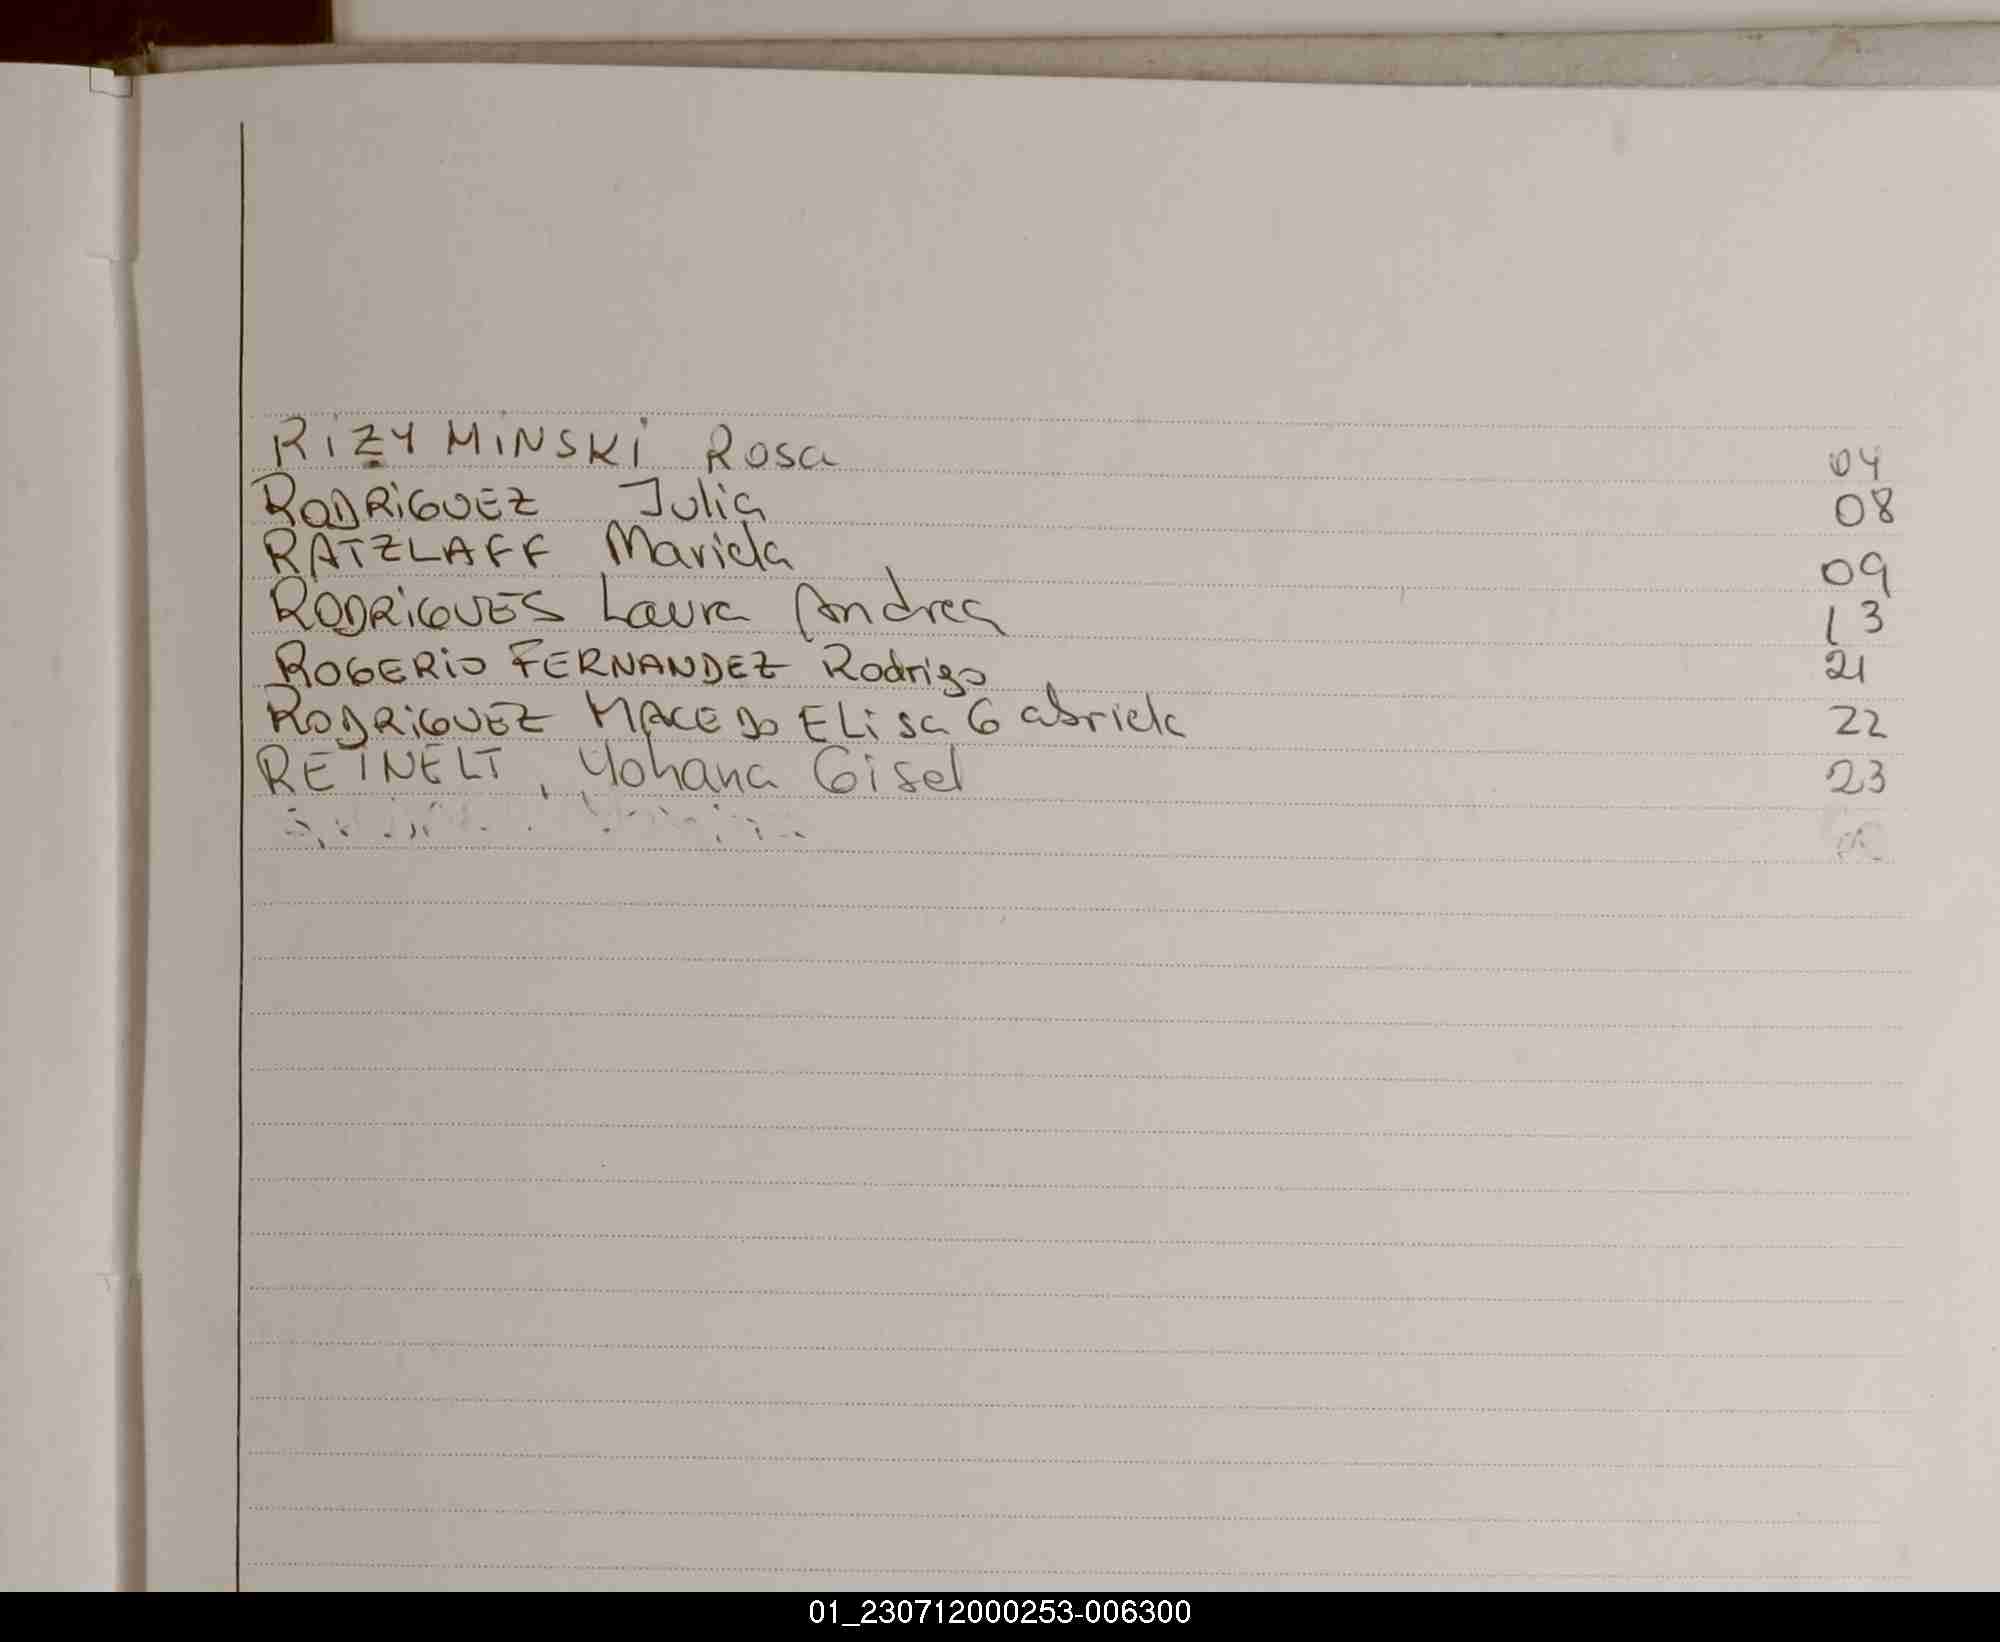 RIZYMINSKI Rosa 04
RODRIGUEZ Julia 08
RATZLAFF Mariela 09
RODRIGUES Laura Andrea 13
ROGERIO FERNANDEZ Rodrigo 21
RODRIGUEZ MACEDO ELisa Gabriela 22
REINELT, Yohana Gisel 23
01_230712000253-006300